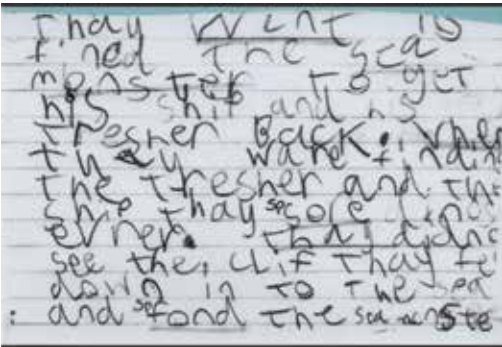 Thay Went to
fined the sea
monster to get
his ship and his
tresher Back. Whe
thay ware findin
the tresher and the
ship thay sore dinos
erner. Thay didnt
see the clif thay fe
down in to the sea
and fond the sea monste